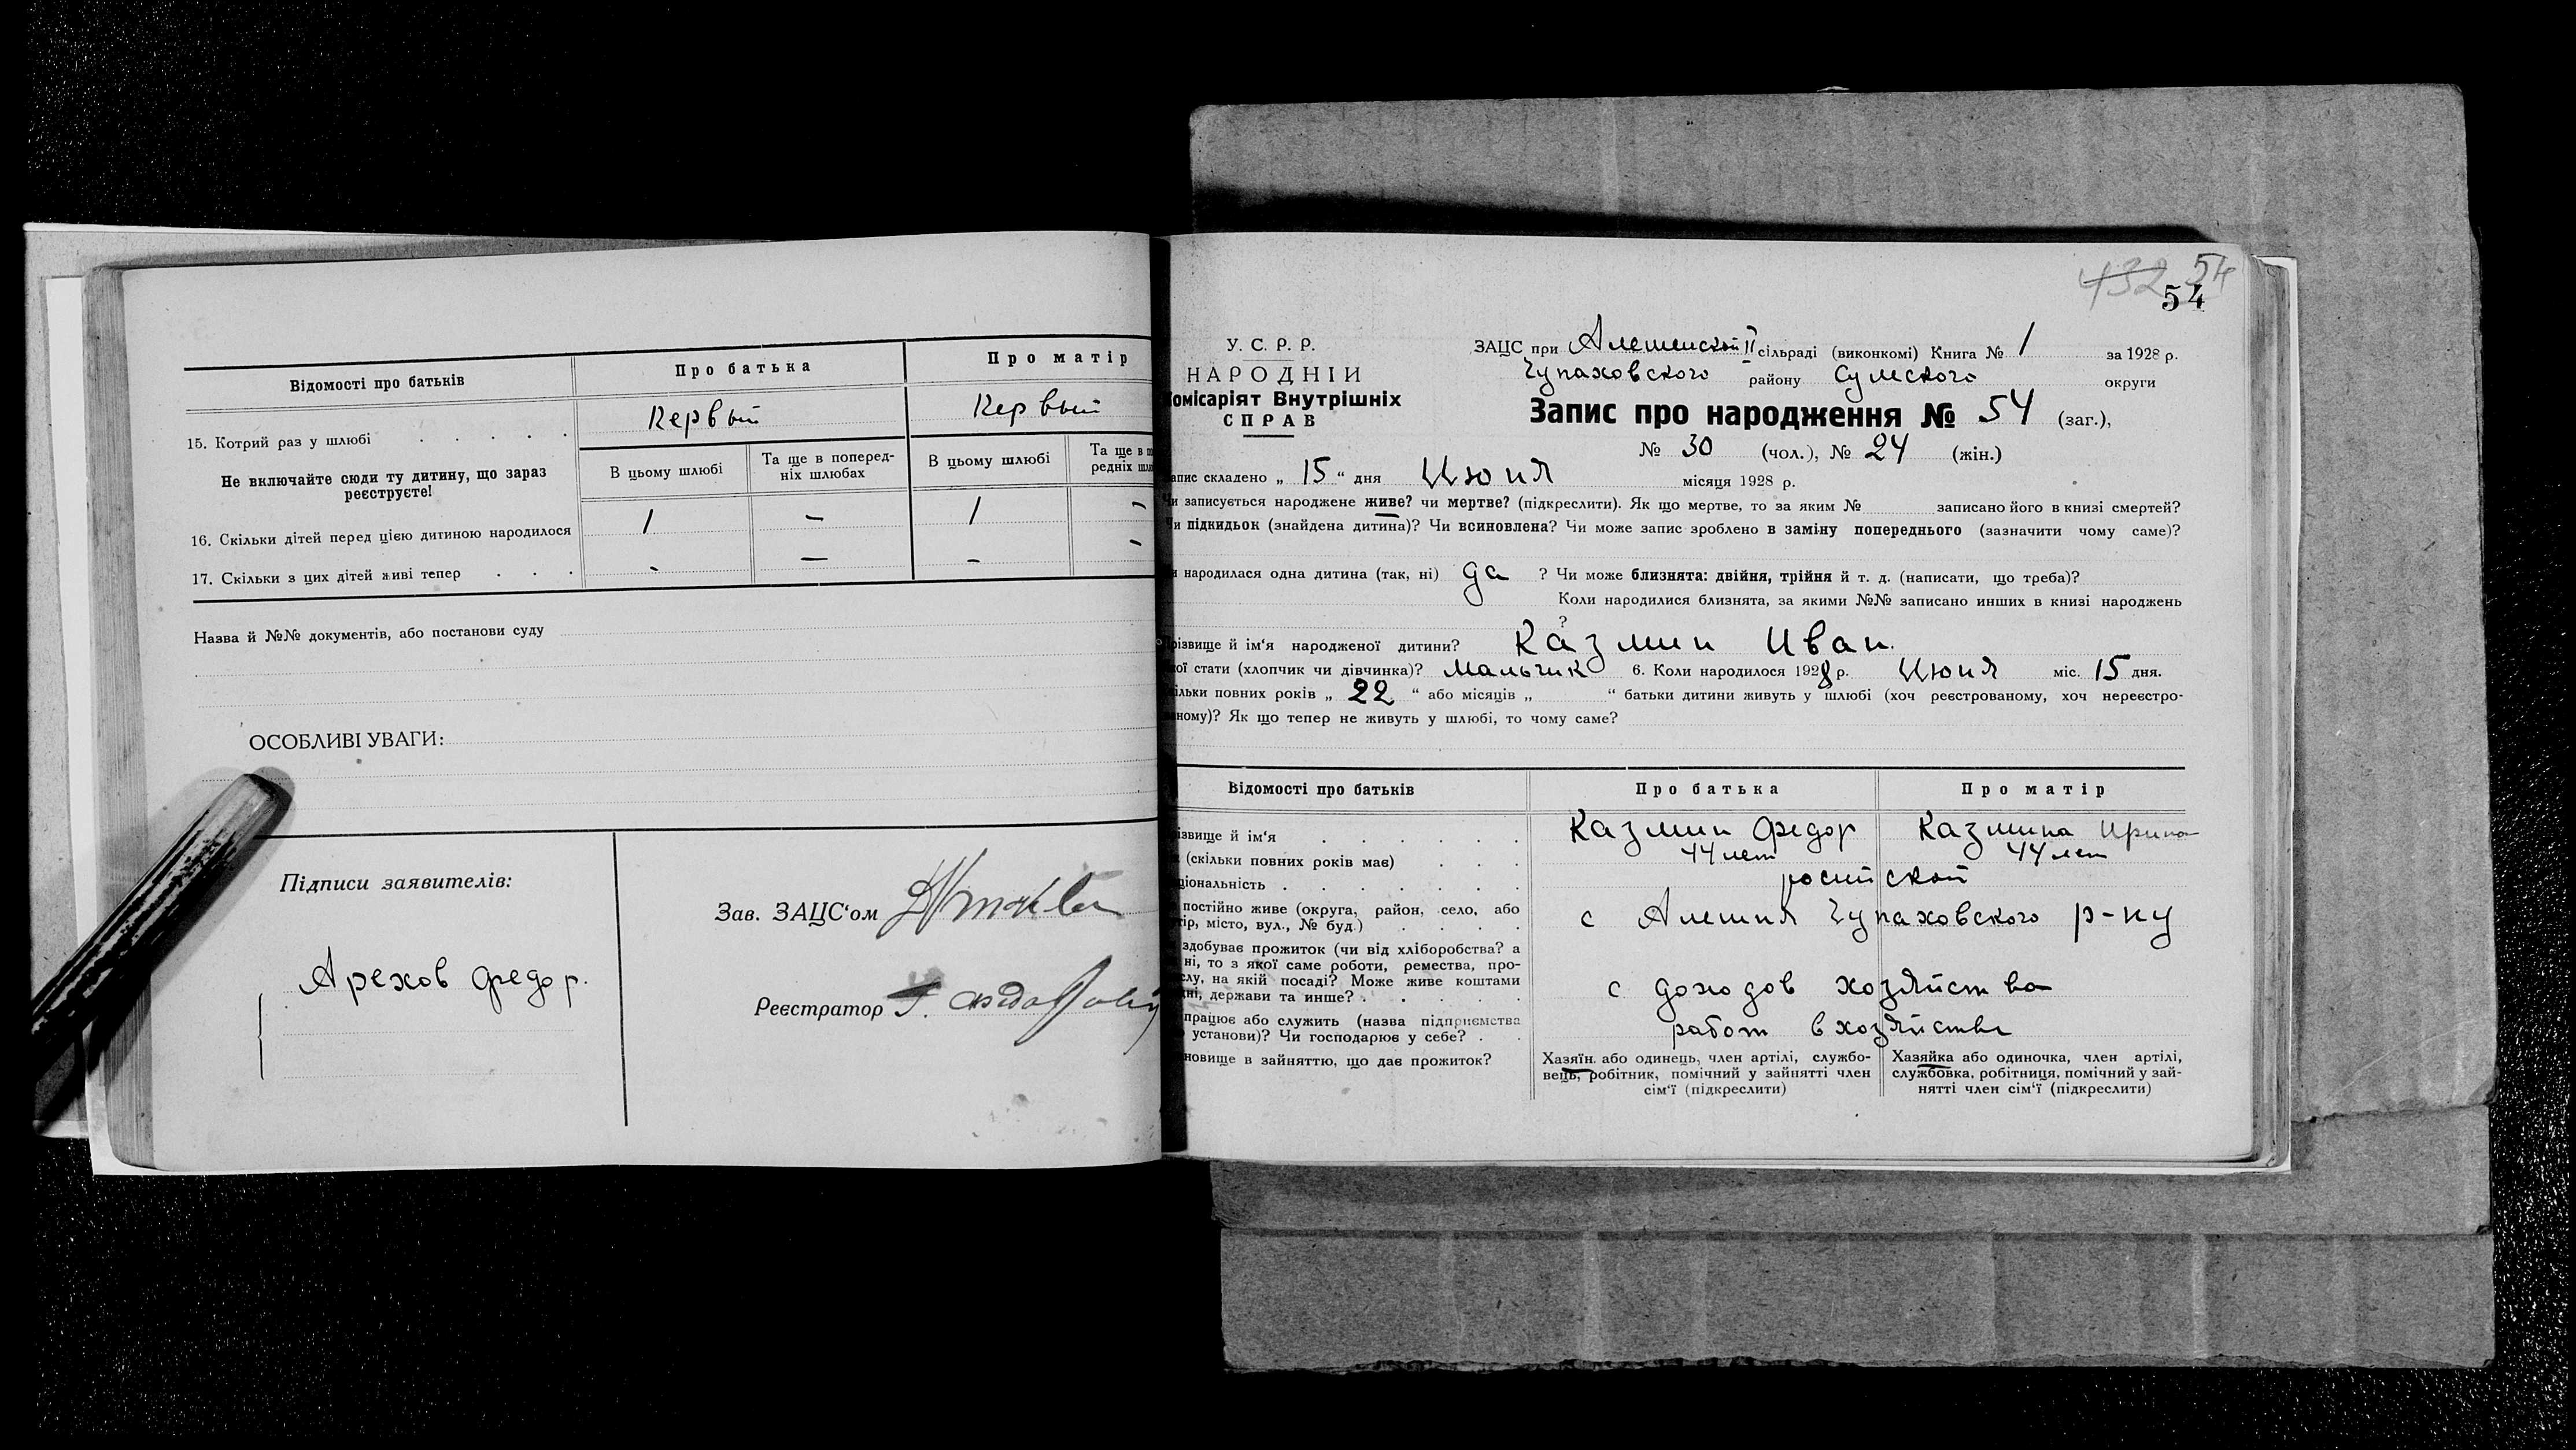 Відомості про батьків
Про батька
Про матір
15. Котрий раз у шлюбі . . . . .
Первый
Первый
Не включайте сюди ту дитину, що зараз
реєструєте!
В цьому шлюбі
Та ще в поперед-
ніх шлюбах
В цьому шлюбі
Та ще в
редніх
16. Скільки дітей перед цією дитиною народилося
1
—
1
-
17. Скільки з цих дітей живі тепер . . .
-
—
-
-
Назва й №№ документів, або постанови суду
ОСОБЛИВІ УВАГИ:
Підписи заявителів:
Арехов Федор.
Зав. ЗАЦС‘ом
Реєстратор
432 54
54
У. С. Р. Р.
НАРОДНІЙ
Комісаріят Внутрішніх
СПРАВ
ЗАЦС при Алешенской II сільраді (виконкомі) Книга № 1 за 1928 р.
Чупаховского району Сумского округи
Запис про народження № 54 (заг.),
№ 30 (чол.), № 24 (жін.)
апис складено „ 15 “ дня Июня місяця 1928 р.
Чи записується народжене живе? чи мертве? (підкреслити). Як що мертве, то за яким № записано його в книзі смертей?
Чи підкидьок (знайдена дитина)? Чи всиновлена? Чи може запис зроблено в заміну попереднього (зазначити чому саме)?
и народилася одна дитина (так, ні) да ? Чи може близнята: двійня, трійня й т. д. (написати, що треба)?
Коли народилися близнята, за якими №№ записано инших в книзі народжень
?
різвище й ім‘я народженої дитини? Казмин Иван.
кої стати (хлопчик чи дівчинка)? Мальчик 6. Коли народилося 1928 р. Июня міс. 15 дня.
кільки повних років „ 22 “ або місяців „ “ батьки дитини живуть у шлюбі (хоч реєстрованому, хоч нереєстро-
ваному)? Як що тепер не живуть у шлюбі, то чому саме?
Відомості про батьків
Про батька
Про матір
ізвище й ім‘я . . . . . .
Казмин Федор
Казмина Ирина
(скільки повних років має) . . .
44 лет
44 лет
ціональність . . . . . . .
росийской
постійно живе (округа, район, село, або
тір, місто, вул., № буд.) . . . .
с Алешня Чупаховского р-ну
здобуває прожиток (чи від хліборобства? а
ні, то з якої саме роботи, ремества, про-
слу, на якій посаді? Може живе коштами
дні, держави та инше? . . . . .
с доходов хозяйства
працює або служить (назва підприємства
установи)? Чи господарює у себе? . .
работ в хозяйстве
новище в зайняттю, що дає прожиток?
Хазяїн. або одинець, член артілі, службо-
вець, робітник, помічний у зайнятті член
сім‘ї (підкреслити)
Хазяйка або одиночка, член артілі,
службовка, робітниця, помічний у зай-
нятті член сім‘ї (підкреслити)